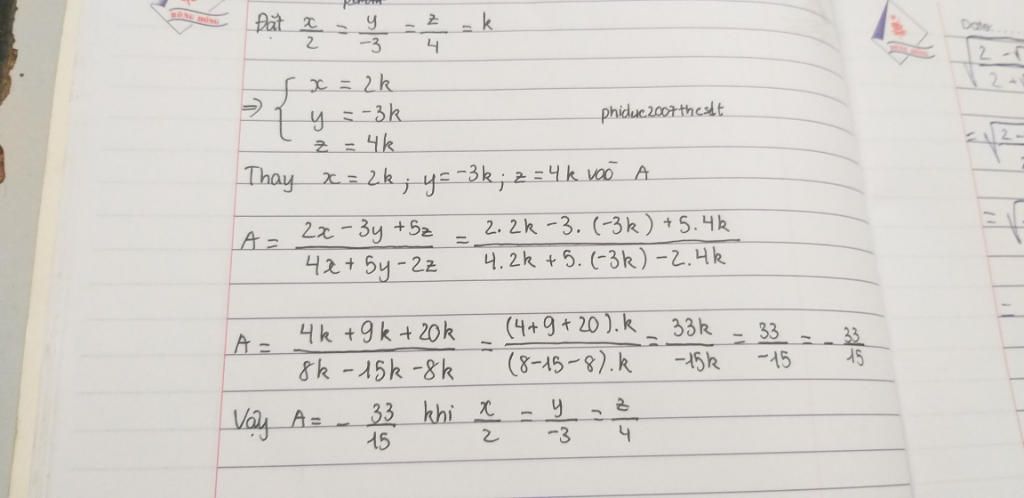 HỒNG HÔNG
Đặt x/2 = y/-3 = z/4 = k
⇒ { x = 2k
y = -3k
z = 4k
phiduc2007thcslt
Thay x = 2k ; y = -3k ; z = 4k vào A
A = (2x - 3y + 5z)/(4x + 5y - 2z) = (2.2k - 3.(-3k) + 5.4k)/(4.2k + 5.(-3k) - 2.4k)
A = (4k + 9k + 20k)/(8k - 15k - 8k) = ((4+9+20).k)/((8-15-8).k) = 33k/-15k = 33/-15 = - 33/15
Vậy A = - 33/15 khi x/2 = y/-3 = z/4
Date